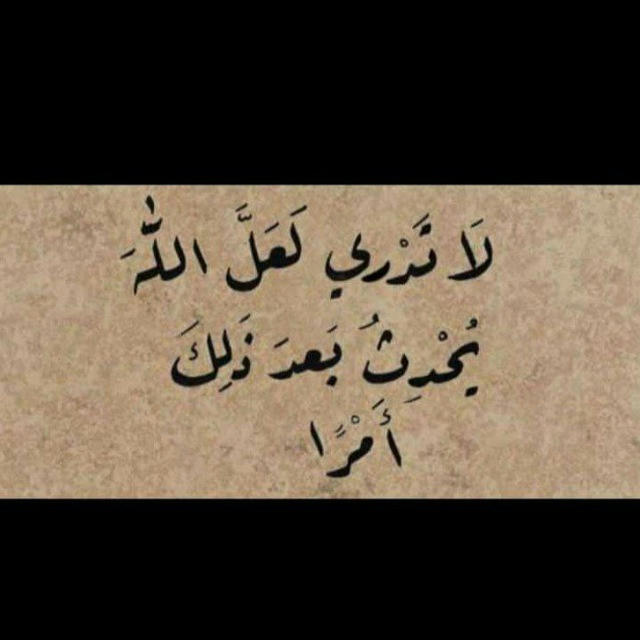 لَا تَدْرِي لَعَلَّ اللّٰهَ
يُحْدِثُ بَعدَ ذَلِكَ
أَمْرًا